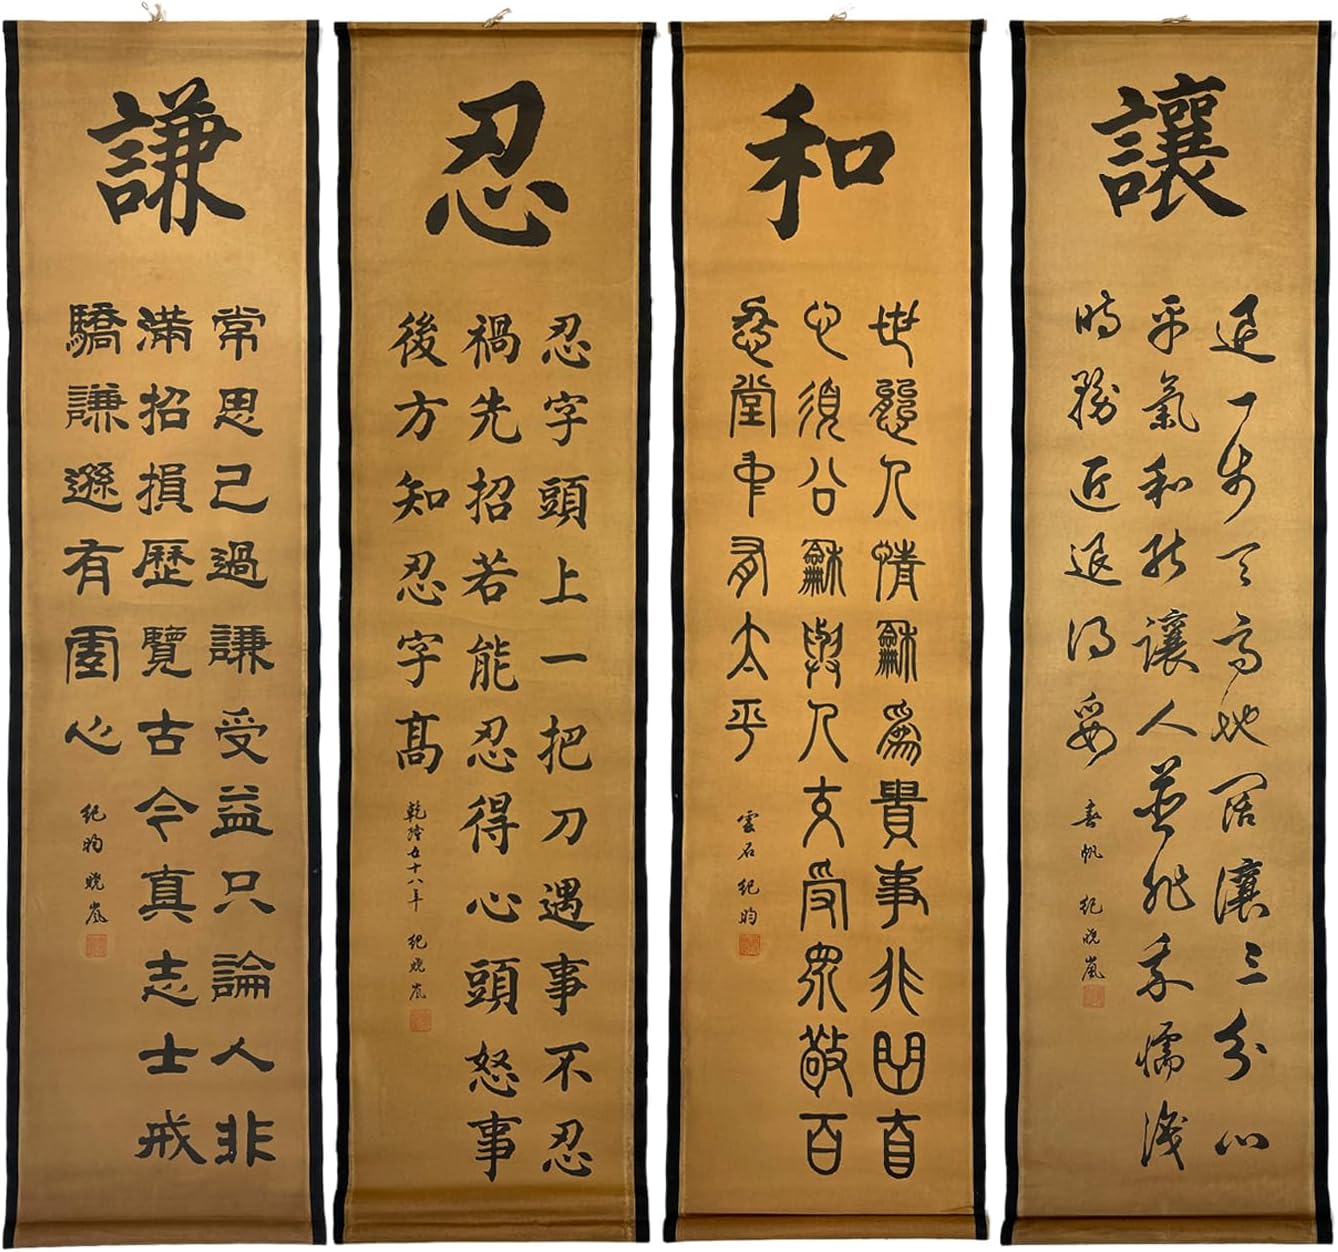 讓
退一步天高地闊讓三分心
平氣和能讓人並非我懦識
時務進退得妥
春帆 紀曉嵐
和
世態人情龢爲貴事非曲直
心須公龢與人交受眾敬百
忍堂中有太平
雲石 紀昀
忍
忍字頭上一把刀遇事不忍
禍先招若能忍得心頭怒事
後方知忍字高
乾隆五十八年 紀曉嵐
謙
常思己過謙受益只論人非
滿招損歷覽古今真志士戒
驕謙遜有心
紀昀 曉嵐